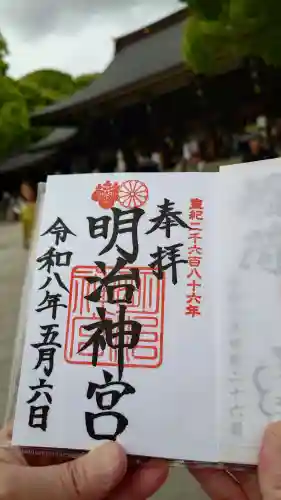 皇紀二千六百八十六年
奉拝
明治神宮
令和八年五月六日